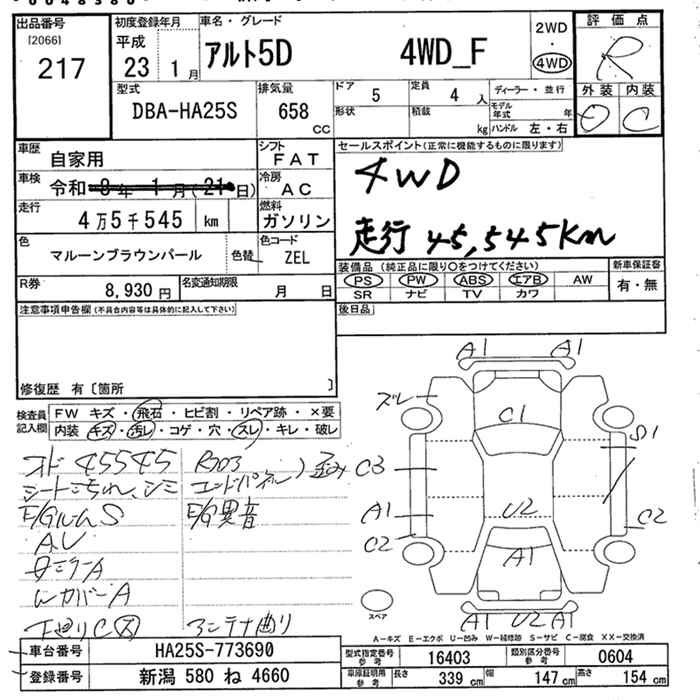 出品番号
[2066]
217
初度登録年月
平成
23 1月
車名・グレード
アルト5D 4WD_F
2WD
・
4WD
評価点
R
外装 内装
C
型式
DBA-HA25S
排気量
658
CC
ドア 5
定員 4 人
ディーラー・並行
形状
積載 kg
モデル年式 年
ハンドル 左・右
車歴 自家用
シフト FAT
車検 令和
冷房 AC
走行 4万5千545 km
燃料 ガソリン
色 マルーンブラウンパール
色替
色コード ZEL
R券 8,930円
名変通知期限 月 日
セールスポイント(正常に機能するものに限ります)
4WD
走行 45,545Km
装備品(純正品に限り〇をつけてください)
新車保証書
PS PW ABS エアB AW
SR ナビ TV カワ
有・無
注意事項申告欄(不具合内容等は具体的に記入して下さい)
後日品
修復歴 有〔箇所 〕
検査員記入欄
FW キズ・飛石・ヒビ割・リペア跡・×要
内装 キズ・汚レ・コゲ・穴・スレ・キレ・破レ
オド 45545
シートこちれ、シミ
E/GルームS
AU
ミラーA
カバーA
下廻りC
エンドパネル)歪み
E/G異音
アンテナ曲り
A1 A1
ズレ
C1
S1
C3
A1
U2
C2
C2
A1
A1 U2 A1
スペア
A-キズ E-エクボ U-凹み W-補修跡 S-サビ C-腐食 XX-交換済
車台番号 HA25S-773690
登録番号 新潟 580 ね 4660
型式指定番号 参考 16403
類別区分番号 参考 0604
車庫証明用 参考 長さ 339 cm 幅 147 cm 高さ 154 cm